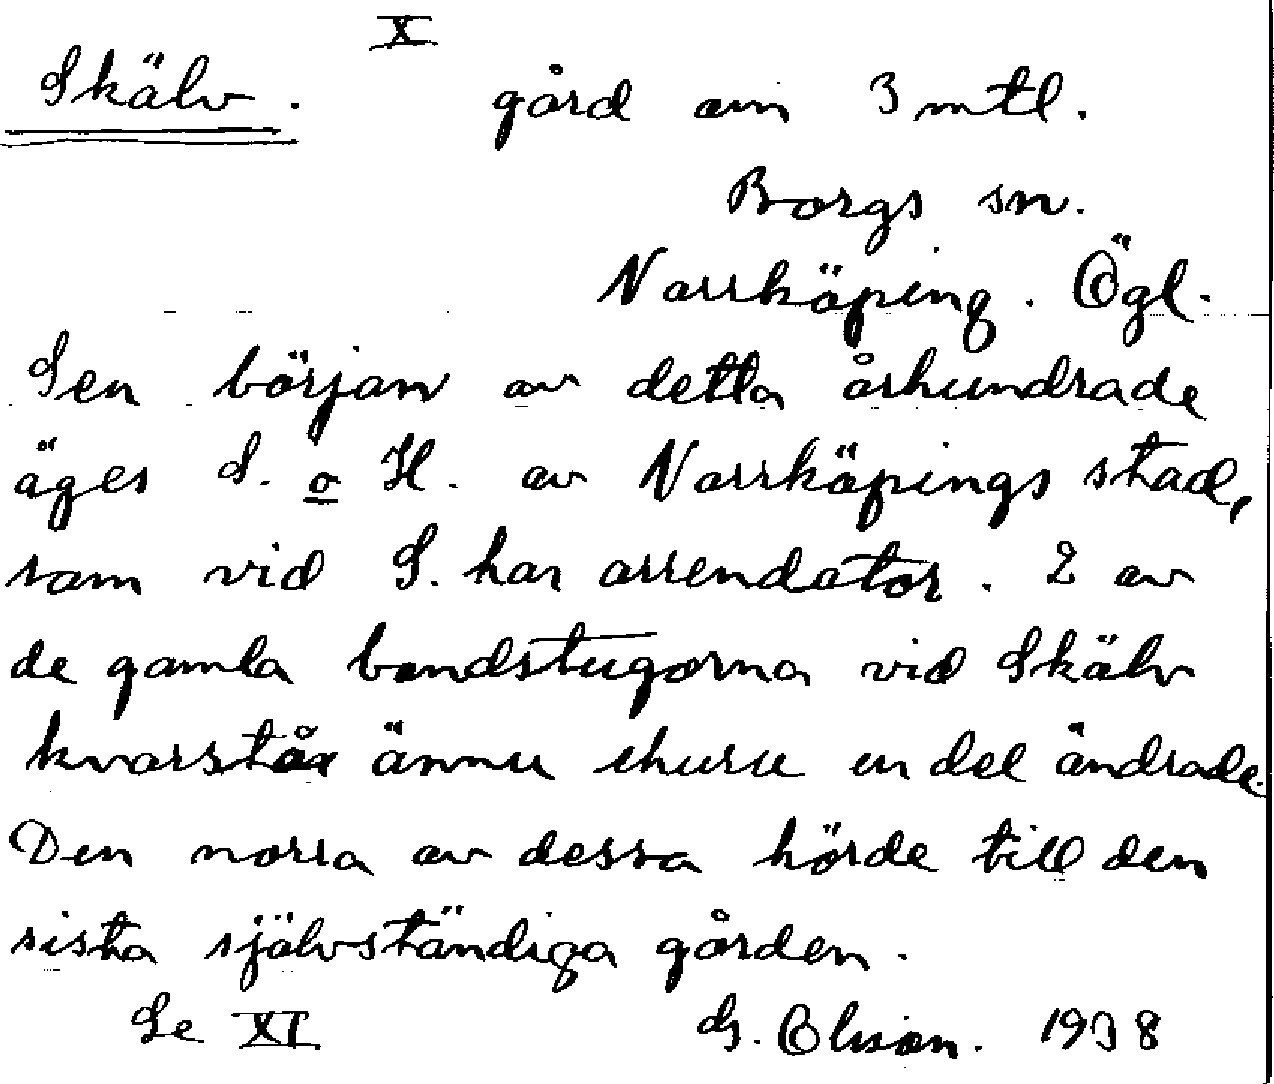 X
Skälv. gård om 3 mtl.
Borgs sn.
Norrköping. Ögl.
Sen början av detta århundrade
äges S. o H. av Norrköpings stad,
som vid S. har arrendator. 2 av
de gamla bondstugorna vid Skälv
kvarstår ännu ehuru en del ändrade.
Den norra av dessa hörde till den
sista självständiga gården.
Se XI G. Olsson. 1938